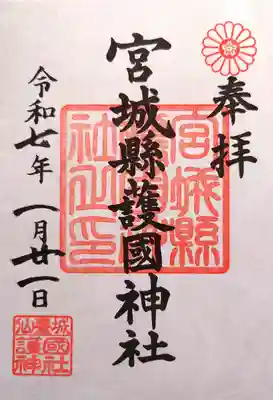 奉拝
宮城縣護國神社
令和七年 一月廿一日
宮城縣護國神社之印
仙臺城
護國
神社